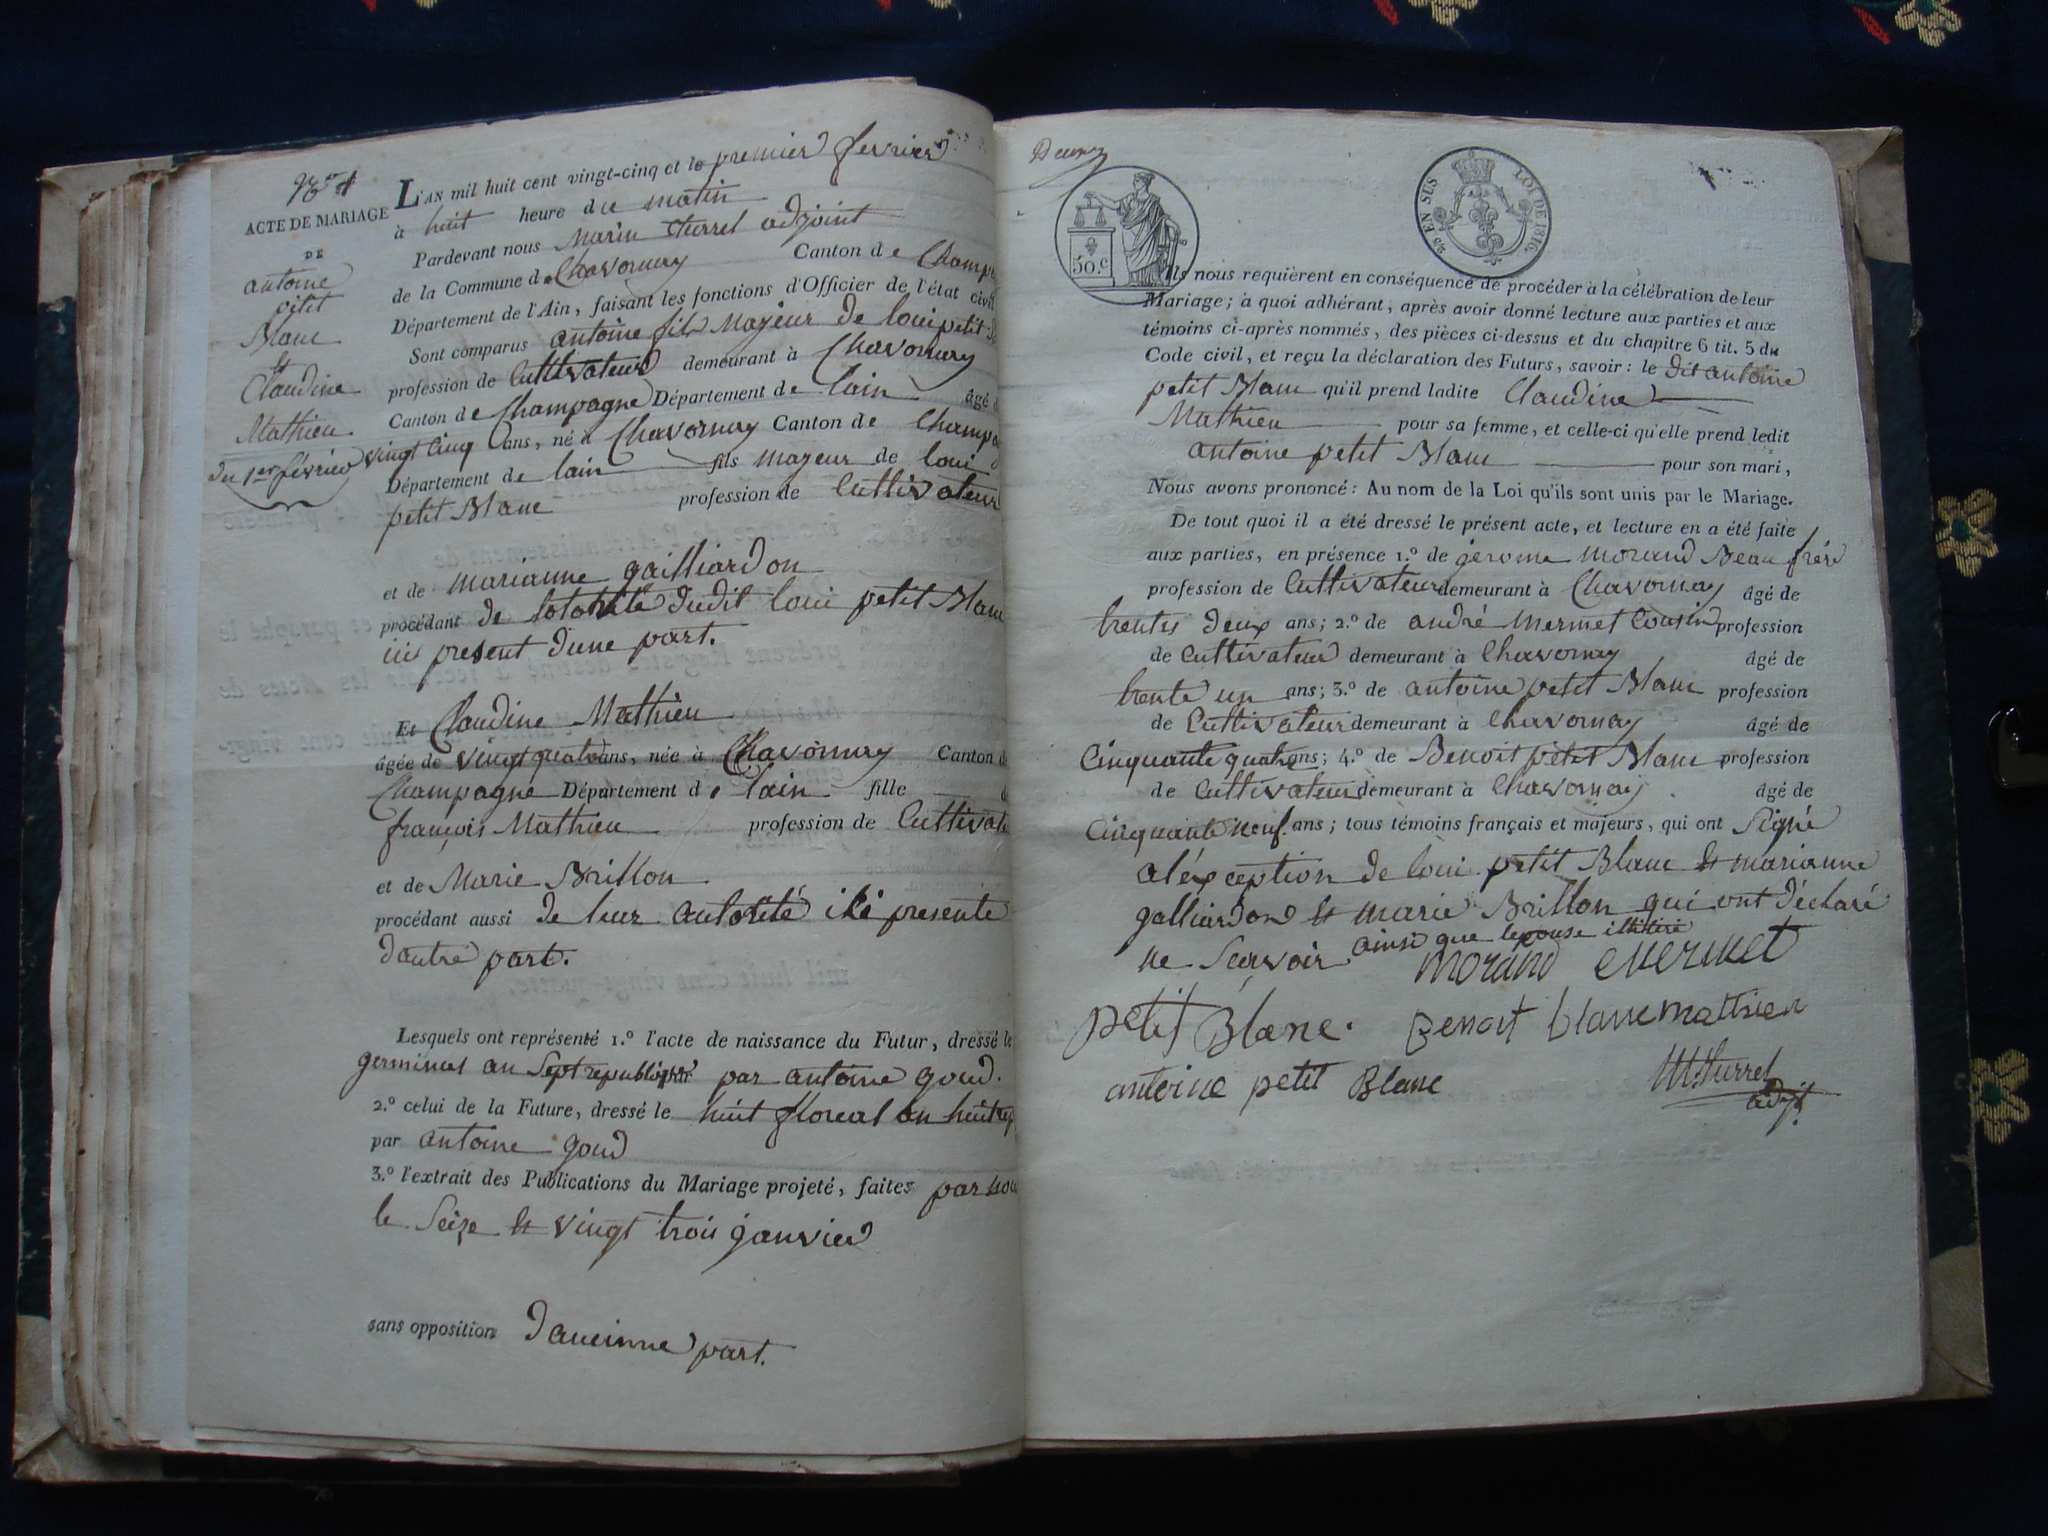 ACTE DE MARIAGE
DE
antoine
petit
Blanc
et
Claudine
Mathieu
du 1er février
L'AN mil huit cent vingt-cinq et le premier fevrier
à huit heure du matin
Pardevant nous Marin turrel adjoint
de la Commune de Chavornay Canton de Champ
Département de l'Ain, faisant les fonctions d'Officier de l'état civil
Sont comparus antoine fils Majeur de loui petit
profession de Cultivateur demeurant à Chavornay
Canton de Champagne Département de lain âgé
vingt cinq ans, né à Chavornay Canton de Champa
Département de lain fils majeur de loui
petit Blanc profession de Cultivateur
et de marianne gailliardon
procédant de lotorité dudit loui petit Blanc
ici present dune part.
Et Claudine Mathieu
âgée de vingt quatre ans, née à Chavornay Canton de
Champagne Département de lain fille
françois Mathieu profession de Cultivate
et de Marie Brillon
procédant aussi de leur autorité ici presente
dautre part.
Lesquels ont représenté 1.º l'acte de naissance du Futur, dressé le
germinal an Sept republique par antoine goud.
2.º celui de la Future, dressé le huit floreal an huit rep
par antoine goud
3.º l'extrait des Publications du Mariage projeté, faites par nou
le Seize et vingt trois janvier
sans opposition daucunne part.
50.c
EN SUS LOI DE 1816.
Ils nous requièrent en conséquence de procéder à la célébration de leur
Mariage; à quoi adhérant, après avoir donné lecture aux parties et aux
témoins ci-après nommés, des pièces ci-dessus et du chapitre 6 tit. 5 du
Code civil, et reçu la déclaration des Futurs, savoir: le dit antoine
petit Blanc qu'il prend ladite Claudine
Mathieu pour sa femme, et celle-ci qu'elle prend ledit
antoine petit Blanc pour son mari,
Nous avons prononcé: Au nom de la Loi qu'ils sont unis par le Mariage.
De tout quoi il a été dressé le présent acte, et lecture en a été faite
aux parties, en présence 1.º de jerome morand Beau frère
profession de Cultivateur demeurant à Chavornay âgé de
trentes deux ans; 2.º de andré mermet Cousin profession
de Cultivateur demeurant à Chavornay âgé de
trente un ans; 3.º de antoine petit Blanc profession
de Cultivateur demeurant à Chavornay âgé de
Cinquante quatre ans; 4.º de Benoit petit Blanc profession
de Cultivateur demeurant à Chavornay âgé de
Cinquante neuf ans; tous témoins français et majeurs, qui ont Signé
aléxception de loui petit Blanc et marianne
galliardon et marie Brillon qui ont déclaré
ne Scavoir ainsi que lepouse illitéré
morand mermet
petit Blanc. Benoit blanc mathieu
antoine petit Blanc M. turrel
adjt.